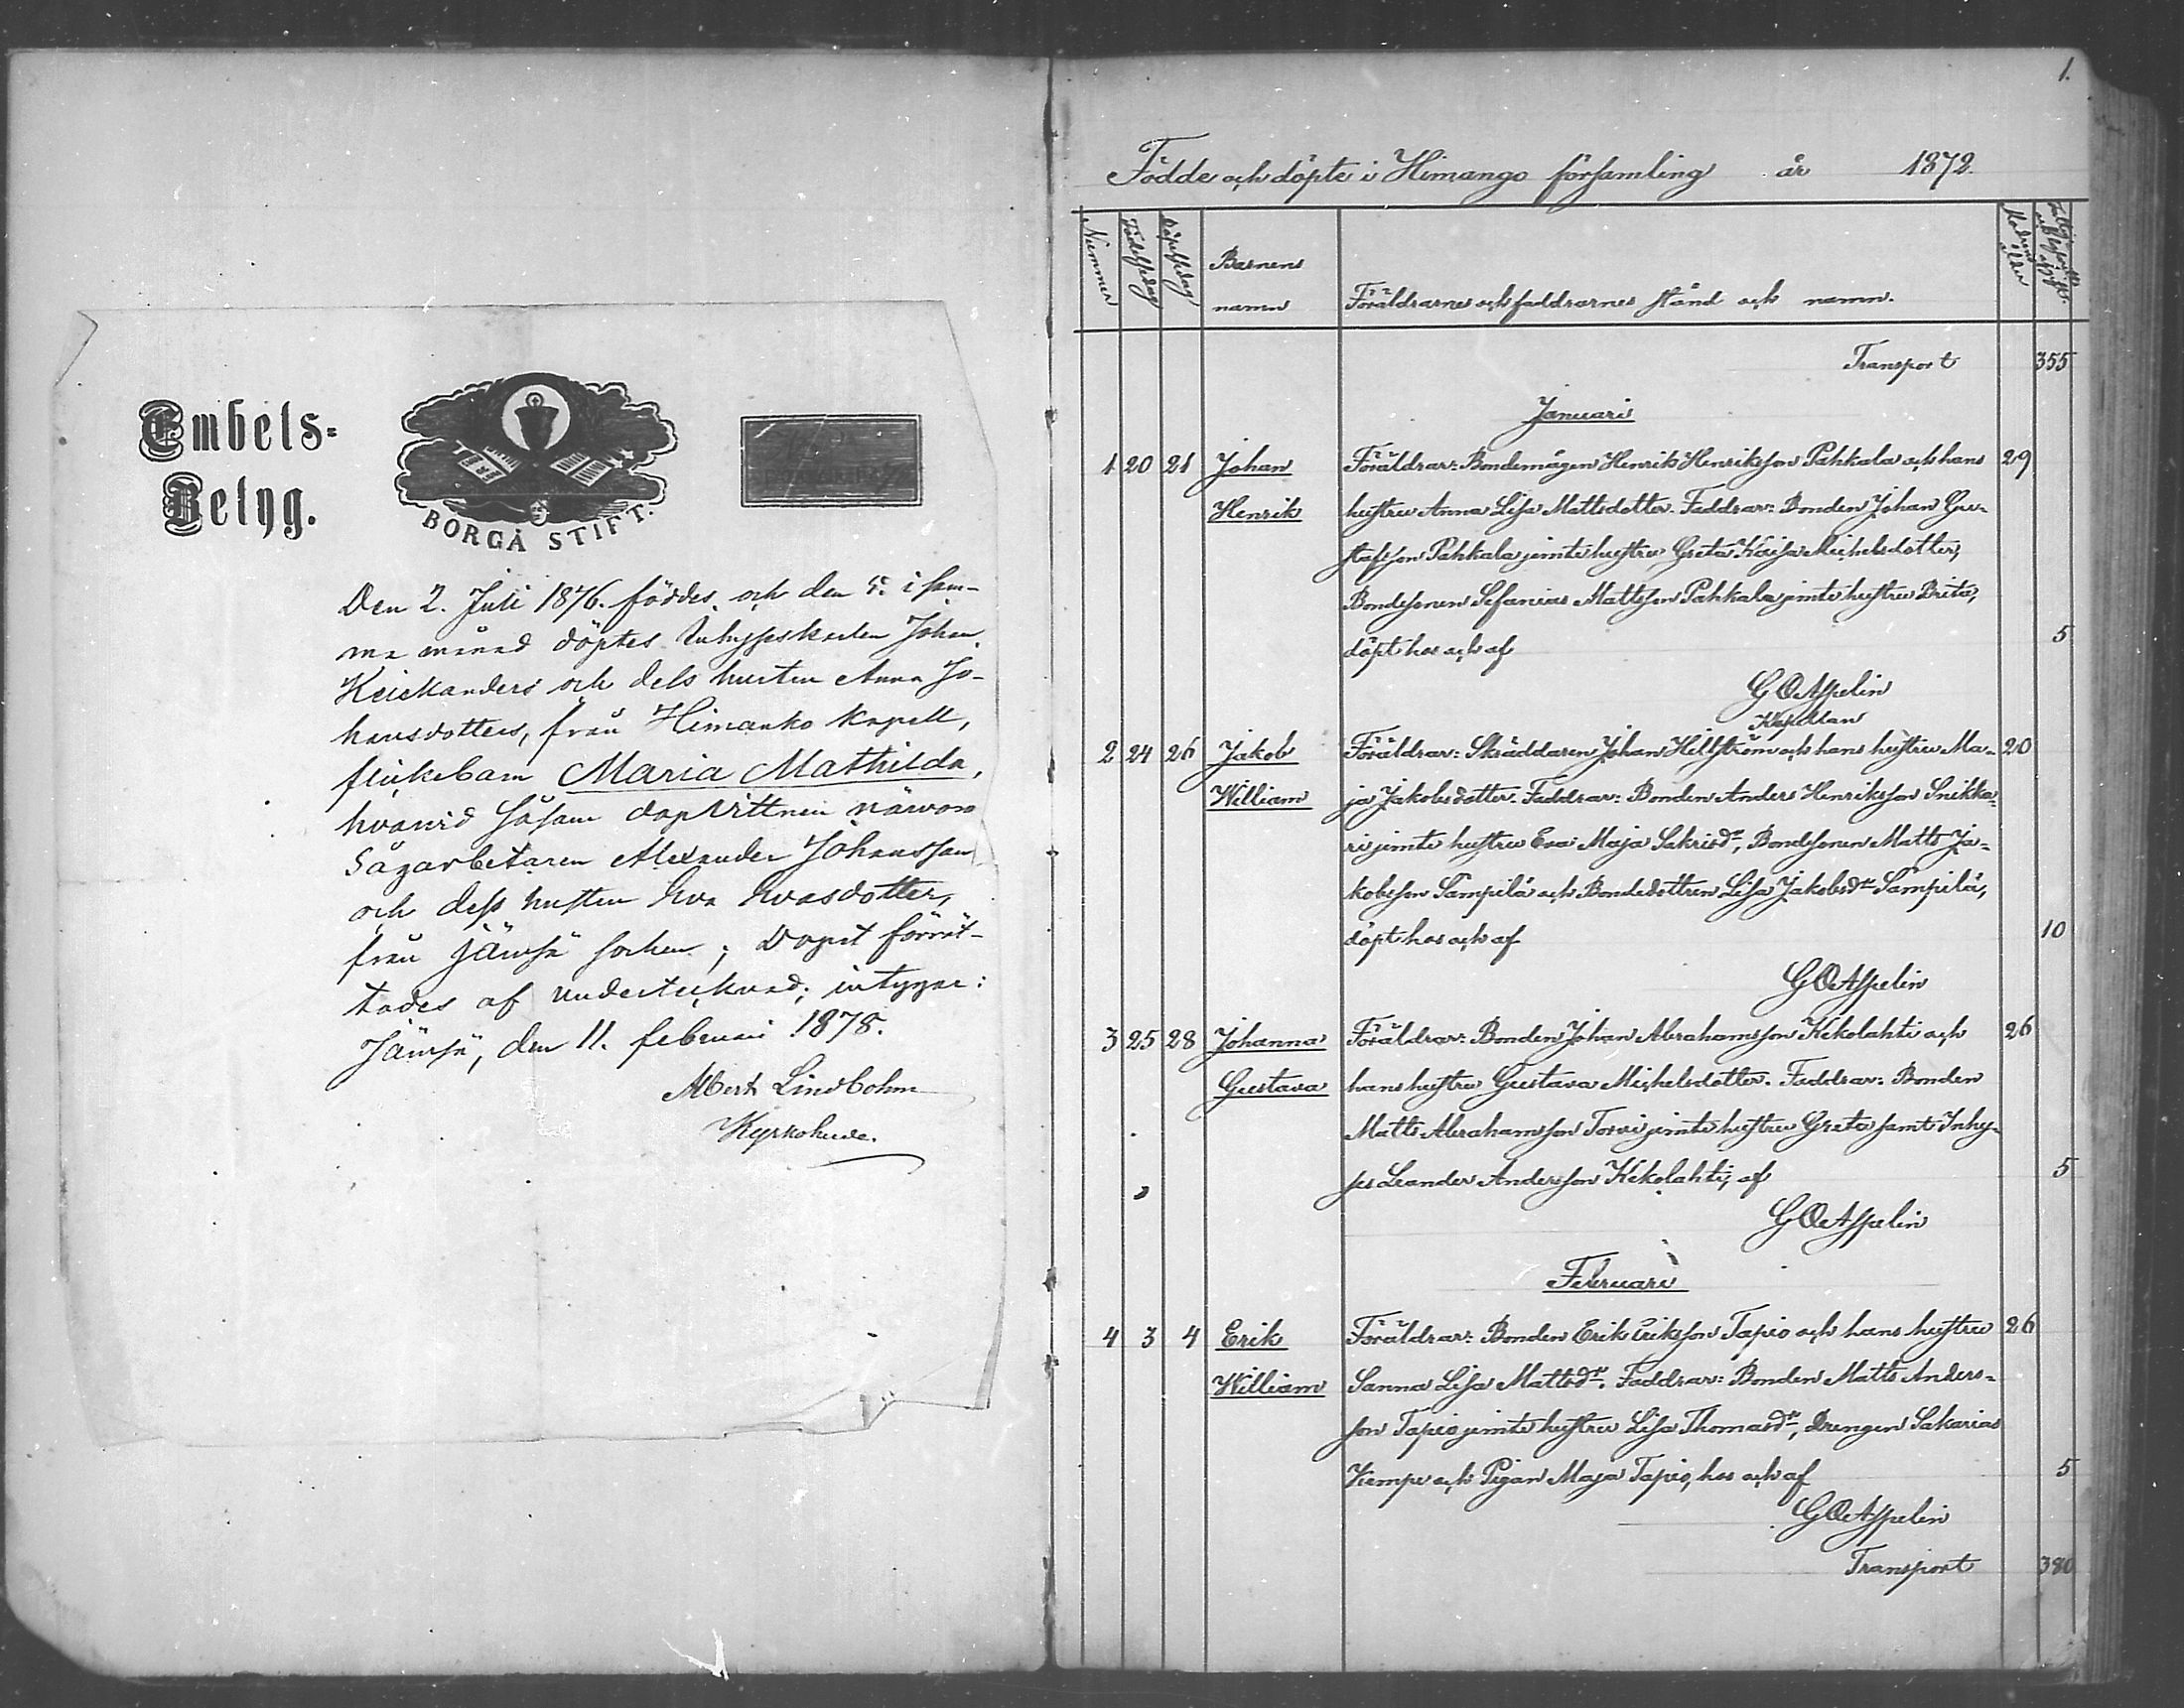 Embets-
Betyg.
BORGÅ STIFT.
Den 2. Juli 1876. föddes och den 5. i sam-
ma månad döptes Inhyseskarlen Johan
Keickanders och dess hustru Anna Jo-
hansdotters, från Himanko Kapell,
flickebarn Maria Mathilda,
hvarvid såsom dopvittnen närvoro
Sågarbetaren Alexander Johansson
och dess hustru Eva Evasdotter,
från Jämsä socken; Dopet förrät-
tades af undertecknad; intygar:
Jämsä, den 11. februari 1878.
Albert Lindbohm
Kyrkoherde.
1.
Födde och döpte i Himango församling år 1872.
Nummer
Födelsedag
Döpelsedag
Barnens
namn
Föräldrarnes och faddrarnes stånd och namn.
Modrens
ålder
Transport 355
Januari
1 20 21 Johan Föräldrar: Bondemågen Henrik Henriksson Pahkala och hans 29
Henrik hustru Anna Lisa Mattsdotter. Faddrar: Bonden Johan Gu-
stafsson Pahkala jemte hustru Greta Kaisa Michelsdotter,
Bondesonen Sefanias Mattsson Pahkala jemte hustru Brita,
döpt hos och af 5
G O Aspelin
Kapellan
2 24 26 Jakob Föräldrar: Skräddaren Johan Hillström och hans hustru Ma- 20
William ja Jakobsdotter. Faddrar: Bonden Anders Henriksson Snikka-
ri jemte hustru Eva Maja Sakrisdr, Bondesonen Matts Ja-
kobsson Sämpilä och Bondedottren Lisa Jakobsdr Sämpilä,
döpt hos och af 10
G O Aspelin
3 25 28 Johanna Föräldrar: Bonden Johan Abrahamsson Kekolahti och 26
Gustava hans hustru Gustava Michelsdotter. Faddrar: Bonden
Matts Abrahamsson Torvi jemte hustru Greta samt Inhy-
ses Leander Andersson Kekolahti, af 5
G O Aspelin
Februari
4 3 4 Erik Föräldrar: Bonden Erik Eriksson Tapio och hans hustru 26
William Sanna Lisa Mattsdr. Faddrar: Bonden Matts Anders-
son Tapio jemte hustru Lisa Thomasdr, Drengen Sakarias
Kempe och Pigan Maja Tapio, hos och af 5
G O Aspelin
Transport 380